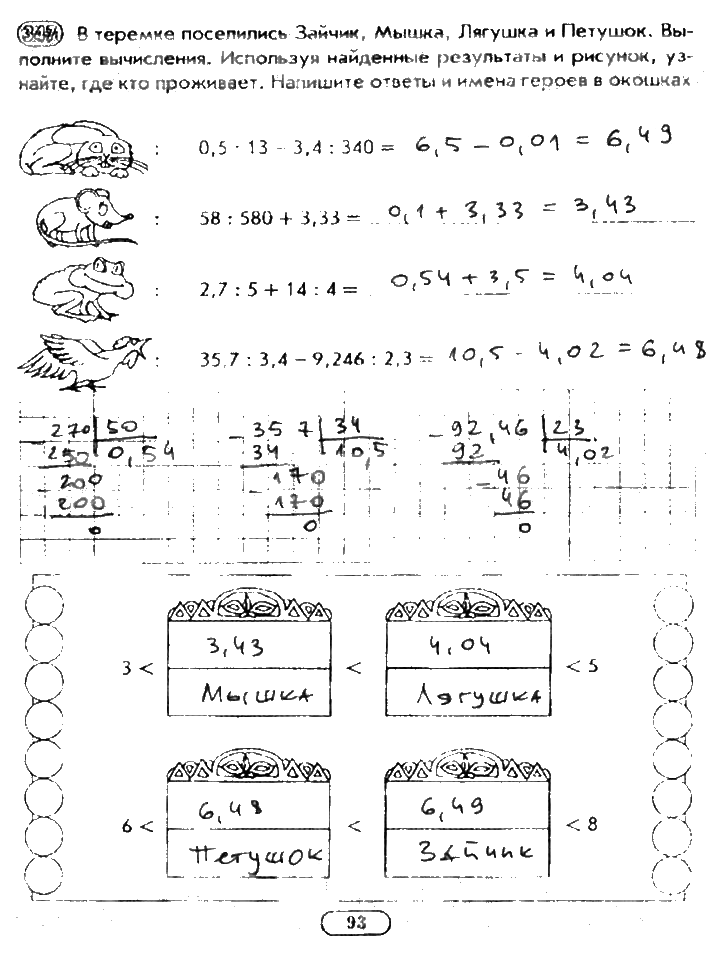 В теремке поселились Зайчик, Мышка, Лягушка и Петушок. Вы-
полните вычисления. Используя найденные результаты и рисунок, уз-
найте, где кто проживает. Напишите ответы и имена героев в окошках
: 0,5 · 13 – 3,4 : 340 = 6,5 – 0,01 = 6,49
: 58 : 580 + 3,33 = 0,1 + 3,33 = 3,43
: 2,7 : 5 + 14 : 4 = 0,54 + 3,5 = 4,04
: 35,7 : 3,4 – 9,246 : 2,3 = 10,5 - 4,02 = 6,48
270 50 – 357 34 – 92,46 23
250 0,54 34 10,5 92 4,02
200 – 170 – 46
200 170 46
0 0 0
3,43 4,04
3 < < < 5
Мышка Лягушка
6,48 6,49
6 < < < 8
Петушок Зайчик
93